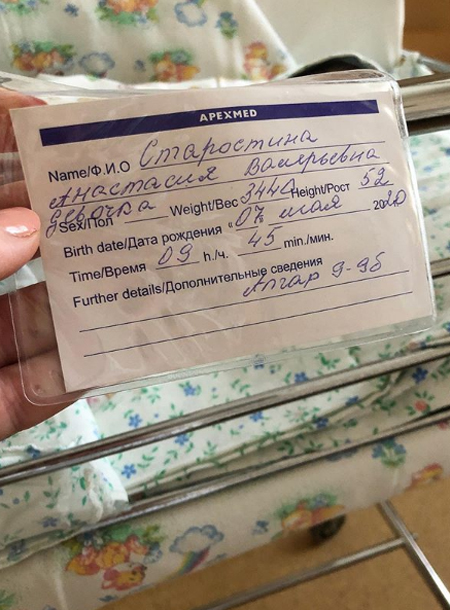 APEXMED
Name/Ф.И.О Старостина
Анастасия Валерьевна
девочка
Sex/Пол Weight/Вес 3440 Height/Рост 52
Birth date/Дата рождения "07" мая 2020
Time/Время 09 h./ч. 45 min./мин.
Further details/Дополнительные сведения
Апгар 9-9б